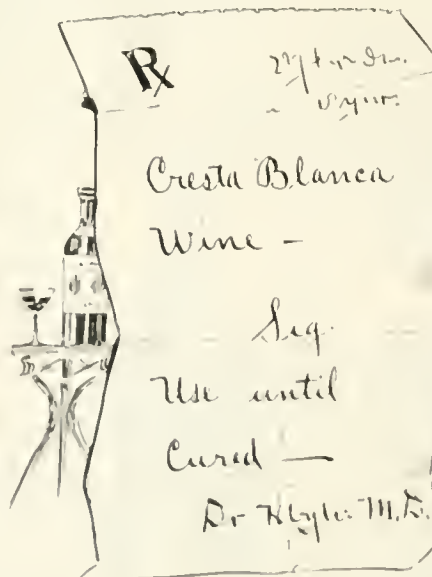 Rx
Cresta Blanca
Wine —
Sig.
Use until
Cured —
Dr M.D.